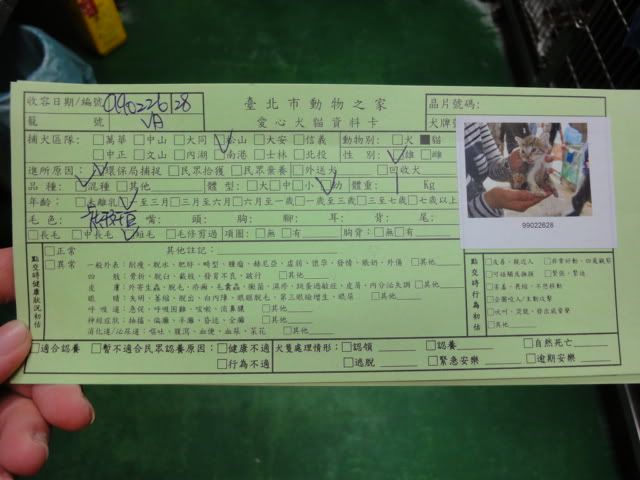 收容日期/編號 990226 28 臺北市動物之家 晶片號碼:
籠 號 VA 愛心犬貓資料卡 犬牌號
捕犬區隊: □萬華 □中山 □大同 □松山 □大安 □信義 動物別: □犬 ■貓
□中正 □文山 □內湖 □南港 □士林 □北投 性 別: □雄 □雌
進所原因: □環保局捕捉 □民眾拾獲 □民眾棄養 □外送犬 □回收犬
品 種: □混種 □其他 體 型: □大 □中 □小 □幼 體重: Kg
年齡: □未離乳 □至三月 □三月~六月 □六月至一歲 □一歲至三歲 □三至七歲 □七歲以上
毛色: 嘴: 頭: 胸: 腳: 耳: 背: 尾:
□長毛 □中長毛 □短毛 □毛修剪過 項圈: □無 □有 胸背: □無 □有
99022628
點交時健康狀況初估 □正常 其他註記:
□異常 一般外表: 削瘦、脫水、肥胖、畸型、腫瘤、赫尼亞、虛弱、懷孕、發情、眼奶、外傷 □其他
四 肢: 骨折、脫臼、截肢、發育不良、跛行 □其他
皮 膚: 外寄生蟲、脫毛、疥癬、毛囊蟲、黴菌、濕疹、跳蚤過敏症、皮屑、內分泌失調 □其他
眼 睛: 失明、萎縮、脫出、白內障、眼瞼脫毛、第三眼瞼增生、眼屎 □其他
呼吸道: 急促、呼吸困難、咳嗽、流鼻膿 □其他
神經症狀: 抽搐、偏癱、半癱、昏迷、全癱 □其他
消化道/泌尿道: 嘔吐、腹瀉、血便、血尿、菜花 □其他
點交時行為初估 □友善、親近人 □非常好動、四處觀察
□可碰觸或撫摸 □緊張、緊迫
□害羞、畏縮、不想移動
□企圖咬人/主動攻擊
□吠叫、哭號、發出威脅聲
□其他
□適合認養 □暫不適合民眾認養原因: □健康不適 犬隻處理情形: □認領 □認養 □自然死亡
□行為不適 □逃脫 □緊急安樂 □逾期安樂